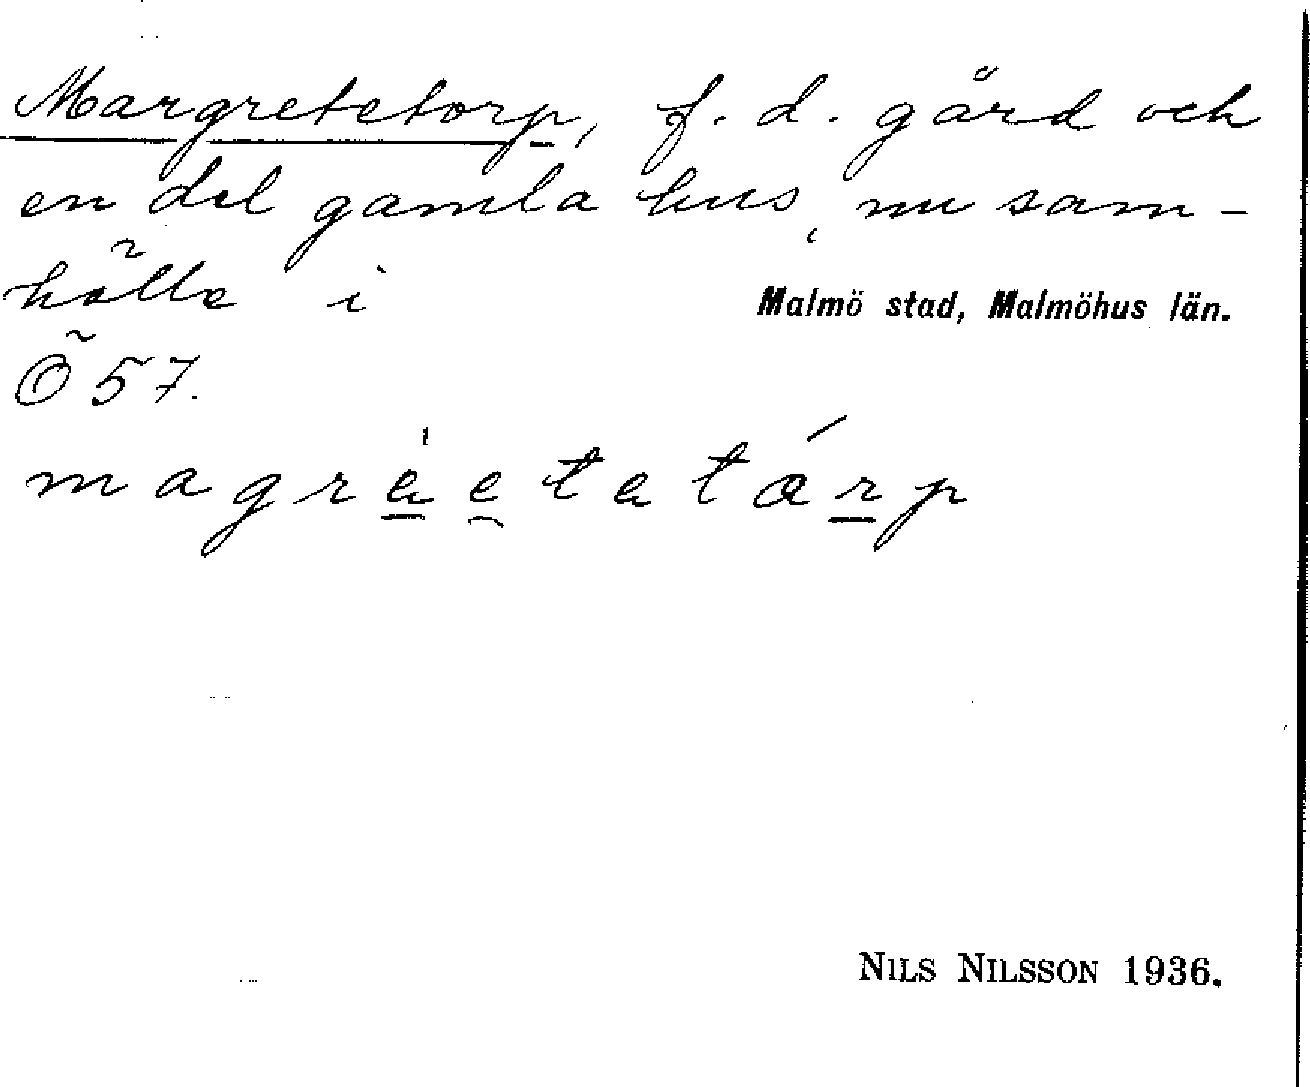 Margretetorp, f. d. gård och
en del gamla hus, nu sam-
hälle i Malmö stad, Malmöhus län.
Ö 57.
magrèetetárp
NILS NILSSON 1936.